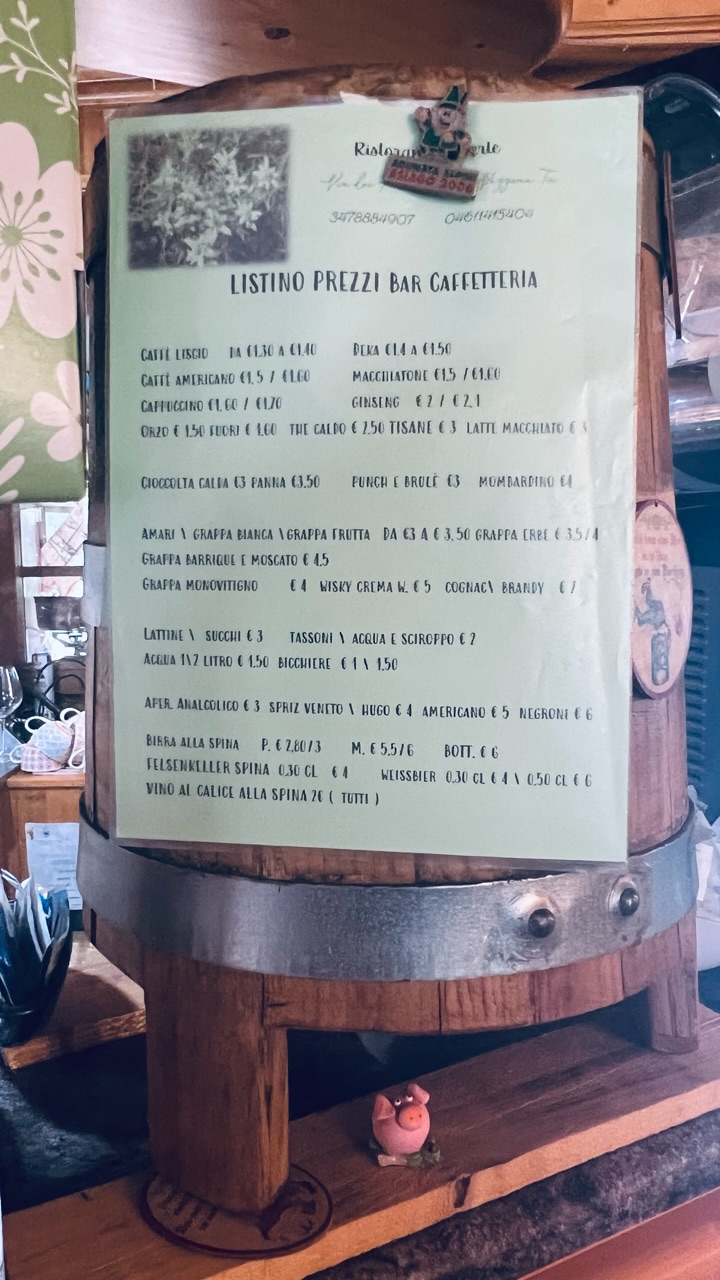 3478884907 04611415404
ADUNATA ALPINI
ASIAGO 2006
LISTINO PREZZI BAR CAFFETTERIA
CAFFÈ LISCIO DA €1.30 A €1.40 DEKA €1.4 A €1.50
CAFFÈ AMERICANO €1.5 / €1.60 MACCHIATONE €1.5 / €1.60
CAPPUCCINO €1.60 / €1.70 GINSENG € 2 / € 2.1
ORZO € 1.50 FUORI € 1.60 THE CALDO € 2.50 TISANE € 3 LATTE MACCHIATO €
CIOCCOLTA CALDA €3 PANNA €3.50 PUNCH E BRULÈ €3 MOMBARDINO €4
AMARI \ GRAPPA BIANCA \ GRAPPA FRUTTA DA €3 A € 3.50 GRAPPA ERBE € 3.5/4
GRAPPA BARRIQUE E MOSCATO € 4.5
GRAPPA MONOVITIGNO € 4 WISKY CREMA W. € 5 COGNAC\ BRANDY € 7
LATTINE \ SUCCHI € 3 TASSONI \ ACQUA E SCIROPPO € 2
ACQUA 1\2 LITRO € 1.50 BICCHIERE € 1 \ 1.50
APER. ANALCOLICO € 3 SPRIZ VENETO \ HUGO € 4 AMERICANO € 5 NEGRONI € 6
BIRRA ALLA SPINA P. € 2,80/3 M. € 5,5/6 BOTT. € 6
FELSENKELLER SPINA 0.30 CL € 4 WEISSBIER 0.30 CL € 4 \ 0.50 CL € 6
VINO AL CALICE ALLA SPINA 2€ ( TUTTI )